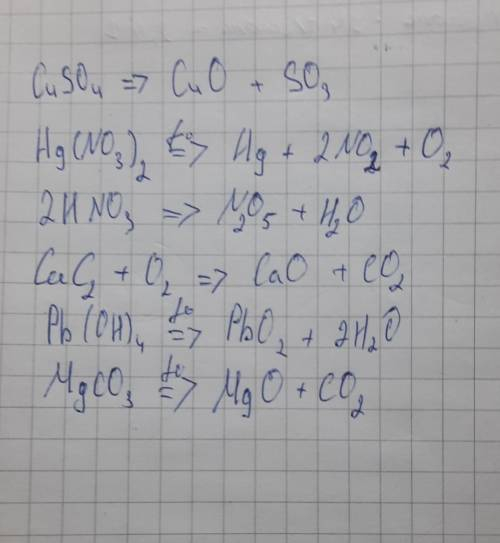 CuSO₄ => CuO + SO₃
Hg(NO₃)₂ t° => Hg + 2NO₂ + O₂
2HNO₃ => N₂O₅ + H₂O
CaC₂ + O₂ => CaO + CO₂
Pb(OH)₄ t° => PbO₂ + 2H₂O
MgCO₃ t° => MgO + CO₂